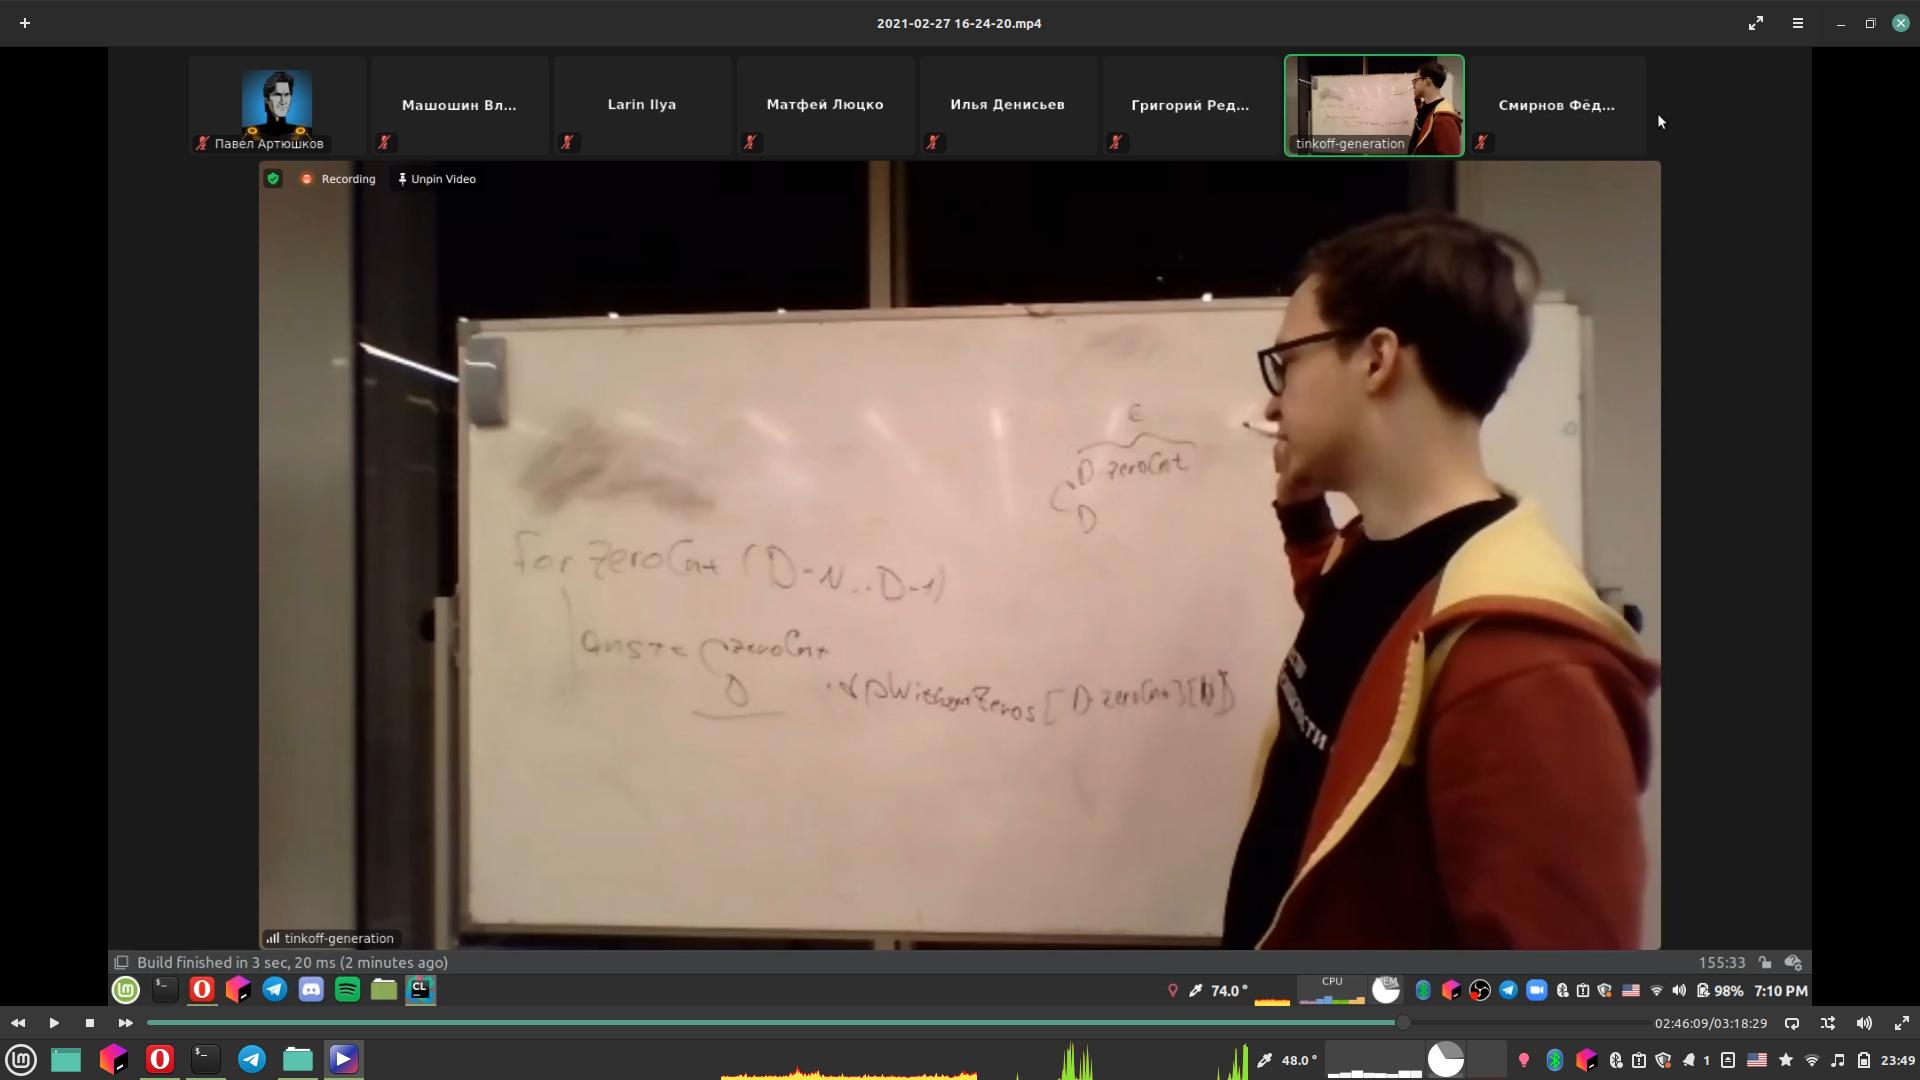 2021-02-27 16-24-20.mp4
Павел Артюшков
Машошин Вл...
Larin Ilya
Матфей Люцко
Илья Денисьев
Григорий Ред...
tinkoff-generation
Смирнов Фёд...
Recording
Unpin Video
C
D-zeroCnt
D
For zeroCnt (D-N..D-1)
ans+=
zeroCnt
D
dpWithoutZeros[D-zeroCnt][N]
tinkoff-generation
Build finished in 3 sec, 20 ms (2 minutes ago)
155:33
CL
74.0°
CPU
MEM
98%
7:10 PM
02:46:09/03:18:29
48.0°
1
23:49